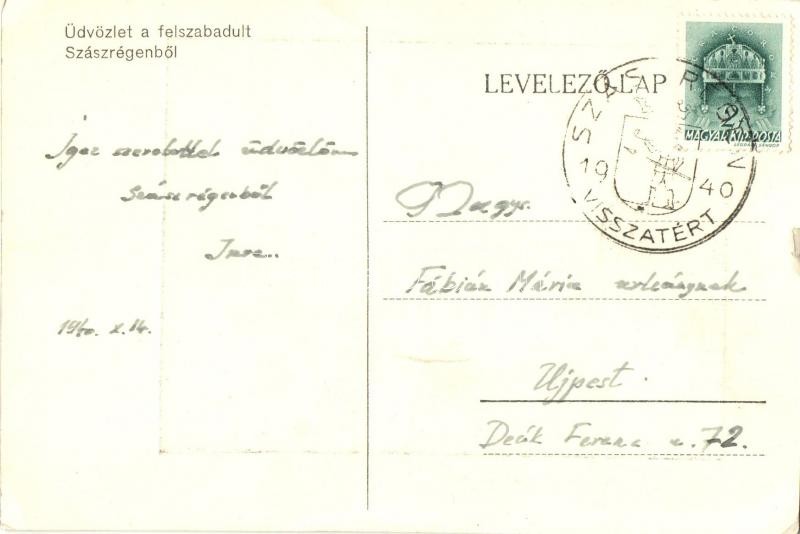 Üdvözlet a felszabadult
Szászrégenből
LEVELEZŐ-LAP
SZÁSZRÉGEN
1940
VISSZATÉRT
2
MAGYAR KIR. POSTA
LÉGRÁDY SÁNDOR
Igaz szeretettel üdvözlöm
Szászrégenből
Imre..
1940. X. 14.
Nagys.
Fábián Mária urleánynak
Ujpest.
Deák Ferenc u. 72.